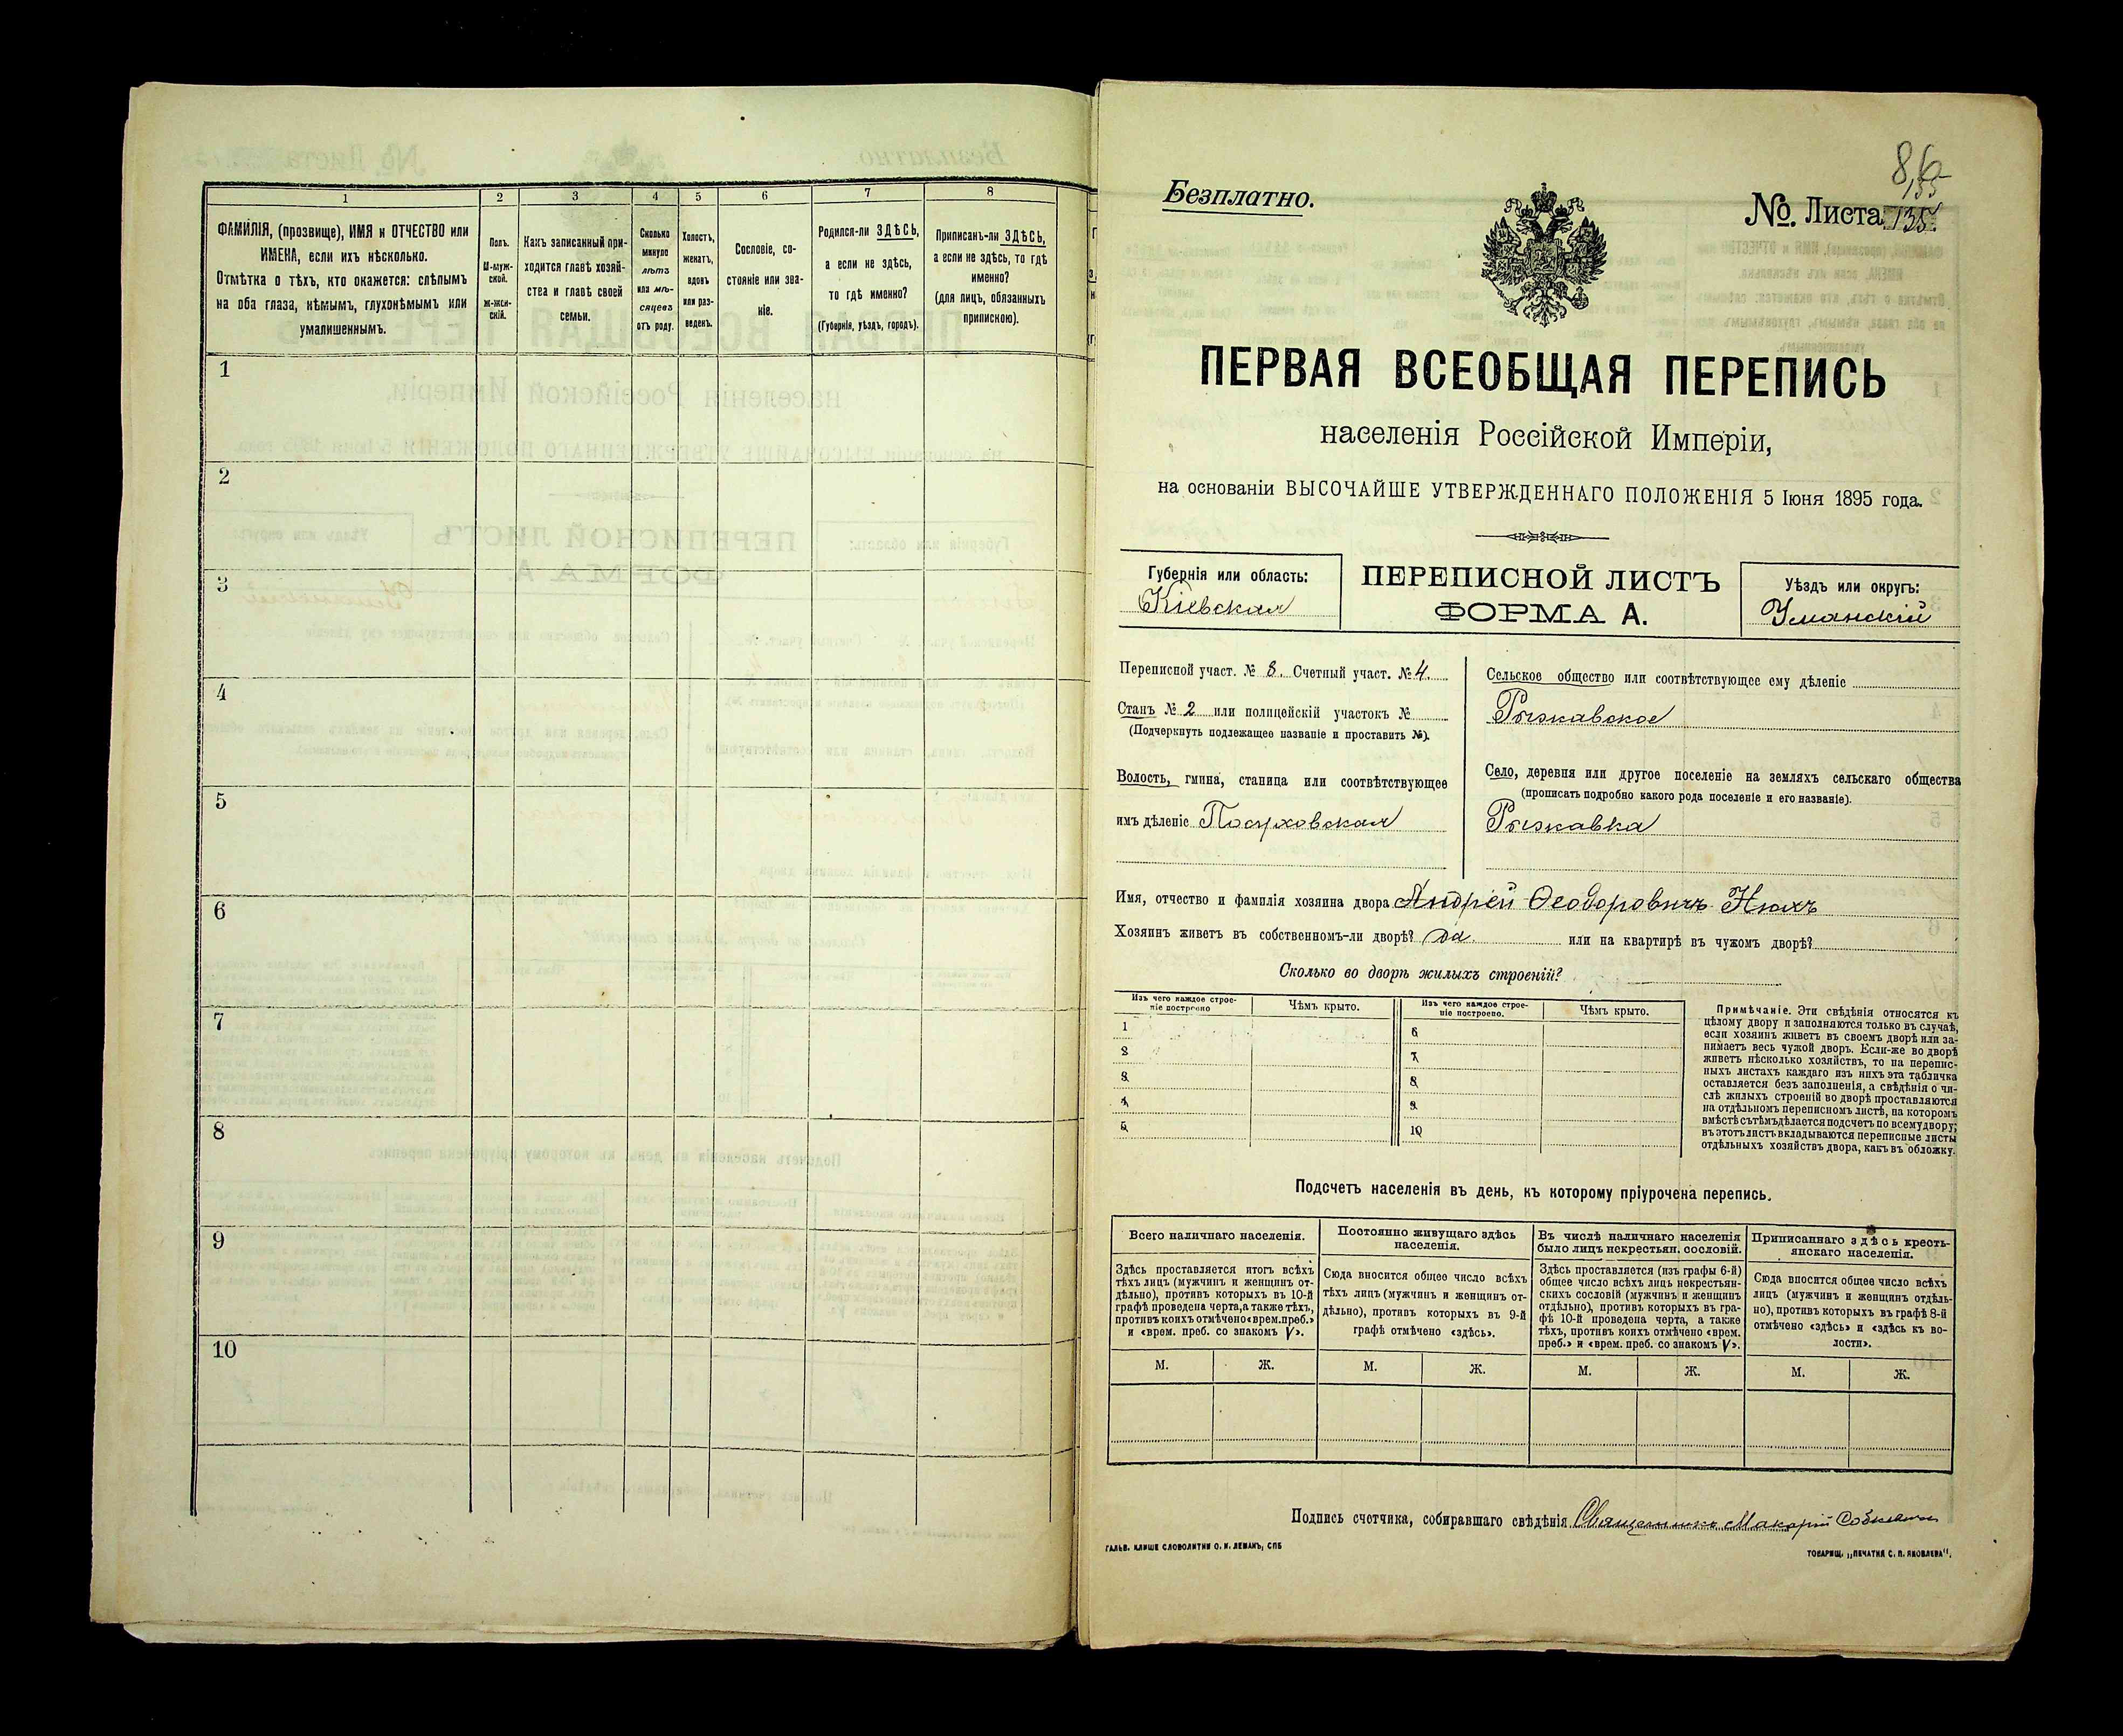 1 2 3 4 5 6 7 8
ФАМИЛІЯ, (прозвище), ИМЯ и ОТЧЕСТВО или
ИМЕНА, если ихъ нѣсколько.
Отмѣтка о тѣхъ, кто окажется: слѣпымъ
на оба глаза, нѣмымъ, глухонѣмымъ или
умалишеннымъ.
Полъ.
М-муж-
ской.
ж-жен-
скій.
Какъ записанный при-
ходится главѣ хозяй-
ства и главѣ своей
семьи.
Сколько
минуло
лѣтъ
или мѣ-
сяцевъ
отъ роду.
Холостъ,
женатъ,
вдовъ
или раз-
веденъ.
Сословіе, со-
стояніе или зва-
ніе.
Родился-ли ЗДѢСЬ,
а если не здѣсь,
то гдѣ именно?
(Губернія, уѣздъ, городъ).
Приписанъ-ли ЗДѢСЬ,
а если не здѣсь, то гдѣ
именно?
(для лицъ, обязанныхъ
припискою).
1
2
3
4
5
6
7
8
9
10
86
135
Безплатно.
№. Листа 135
ПЕРВАЯ ВСЕОБЩАЯ ПЕРЕПИСЬ
населенія Россійской Имперіи,
на основаніи ВЫСОЧАЙШЕ УТВЕРЖДЕННАГО ПОЛОЖЕНІЯ 5 Іюня 1895 года.
Губернія или область:
Кіевская
ПЕРЕПИСНОЙ ЛИСТЪ
ФОРМА А.
Уѣздъ или округъ:
Уманскій
Переписной участ. № 8. Счетный участ. № 4.
Станъ № 2 или полицейскій участокъ №
(Подчеркнуть подлежащее названіе и проставить №).
Волость, гмина, станица или соотвѣтствующее
имъ дѣленіе Посуховская
Сельское общество или соотвѣтствующее ему дѣленіе
Рыжавское
Село, деревня или другое поселеніе на земляхъ сельскаго общества
(прописать подробно какого рода поселеніе и его названіе).
Рыжавка
Имя, отчество и фамилія хозяина двора Андрей Ѳеодоровичъ Нюхъ
Хозяинъ живетъ въ собственномъ-ли дворѣ? да. или на квартирѣ въ чужомъ дворѣ?
Сколько во дворѣ жилыхъ строеній?
Изъ чего каждое строе-
ніе построено
Чѣмъ крыто.
Изъ чего каждое строе-
ніе построено.
Чѣмъ крыто.
1
2
3
4
5
6
7
8
9
10
Примѣчаніе. Эти свѣдѣнія относятся къ
цѣлому двору и заполняются только въ случаѣ,
если хозяинъ живетъ въ своемъ дворѣ или за-
нимаетъ весь чужой дворъ. Если-же во дворѣ
живетъ нѣсколько хозяйствъ, то на перепис-
ныхъ листахъ каждаго изъ нихъ эта табличка
оставляется безъ заполненія, а свѣдѣнія о чи-
слѣ жилыхъ строеній во дворѣ проставляются
на отдѣльномъ переписномъ листѣ, на которомъ
вмѣстѣ съ тѣмъ дѣлается подсчетъ по всему двору;
въ этотъ листъ вкладываются переписные листы
отдѣльныхъ хозяйствъ двора, какъ въ обложку.
Подсчетъ населенія въ день, къ которому пріурочена перепись.
Всего наличнаго населенія.
Здѣсь проставляется итогъ всѣхъ
тѣхъ лицъ (мужчинъ и женщинъ от-
дѣльно), противъ которыхъ въ 10-й
графѣ проведена черта, а также тѣхъ,
противъ коихъ отмѣчено «врем. преб.»
и «врем. преб. со знакомъ V».
Постоянно живущаго здѣсь
населенія.
Сюда вносится общее число всѣхъ
тѣхъ лицъ (мужчинъ и женщинъ от-
дѣльно), противъ которыхъ въ 9-й
графѣ отмѣчено «здѣсь».
Въ числѣ наличнаго населенія
было лицъ некрестьян. сословій.
Здѣсь проставляется (изъ графы 6-й)
общее число всѣхъ лицъ некрестьян-
скихъ сословій (мужчинъ и женщинъ
отдѣльно), противъ которыхъ въ гра-
фѣ 10-й проведена черта, а также
тѣхъ, противъ коихъ отмѣчено «врем.
преб.» и «врем. преб. со знакомъ V».
Приписаннаго здѣсь кресть-
янскаго населенія.
Сюда вносится общее число всѣхъ
лицъ (мужчинъ и женщинъ отдѣль-
но), противъ которыхъ въ графѣ 8-й
отмѣчено «здѣсь» и «здѣсь къ во-
лости».
М. Ж. М. Ж. М. Ж. М. Ж.
Подпись счетчика, собиравшаго свѣдѣнія Священникъ Макарій Собкевичъ
ГАЛЬВ. КЛИШЕ СЛОВОЛИТНИ О. И. ЛЕМАНЪ, СПБ
ТОВАРИЩ. „ПЕЧАТНЯ С. П. ЯКОВЛЕВА“.